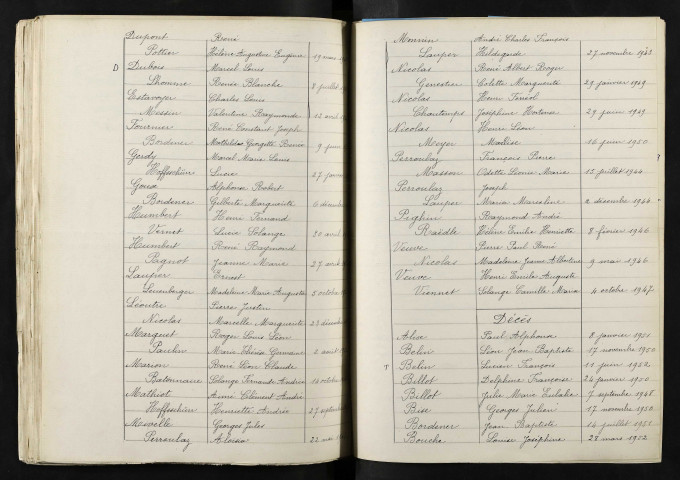 Dupont René
Pottier Hélène Augustine Eugénie 19 mars
D
Dubois Marcel Louis
Lhomme Renée Blanche 8 juillet
Estavoyer Charles Louis
Messin Valentine Raymonde 12 avril
Fournier René Constant Joseph
Bordener Mathilde Georgette 9 juin
Gerdy Marcel Marie Louis
Hoffschürr Lucie 27 janvier
Goux Alphonse Robert
Bordener Gilberte Marguerite 6 décembre
Humbert Henri Fernand
Vernet Lucie Solange 20 avril
Humbert René Raymond
Pagnot Jeanne Marie 27 avril
Lauper Ernest
Leuenberger Madeleine Marie Augusta 8 octobre
Léoutre Pierre Justin
Nicolas Marcelle Marguerite 23 décembre
Marquet Roger Louis Léon
Paulin Marie Thérèse Germaine 4 août
Marion René Léon Claude
Solange Fernande Andrée 14 octobre
Mathiot Aimé Clément André
Hoffschürr Henriette Andrée 27 septembre
Georges Jules
Perroulaz Aloïsia 22 mai
Meunier André Charles François
Lauper Hildegarde 27 novembre 1948
Nicolas René Albert Roger
Genestier Colette Marguerite 29 janvier 1949
Nicolas Henri
Chantemps Joséphine Hortense 29 juin 1949
Nicolas Henri Léon
Meyer 16 juin 1950
Perroulaz François Pierre
Masson Odette Léonie Marie 15 juillet 1944
Perroulaz Joseph
Lauper Marie Marceline 2 décembre 1944
Raymond André
Hélène Emilie Henriette 8 février 1946
Veuve Pierre Paul René
Nicolas Madeleine Jeanne Albertine 9 mai 1946
Veuve Henri Emile Auguste
Viennet Solange Camille Marie 4 octobre 1947
Décès
Alix Paul Alphonse 8 janvier 1951
Belin Léon Jean Baptiste 17 novembre 1950
T
Belin Lucien François 11 juin 1952
Billot Delphine Françoise 24 janvier 1950
Billot Julie Marie Eulalie 7 septembre 1948
Bise Georges Julien 17 novembre 1950
Bordener Jean Baptiste 14 juillet 1951
Bouche Louise Joséphine 28 mars 1952